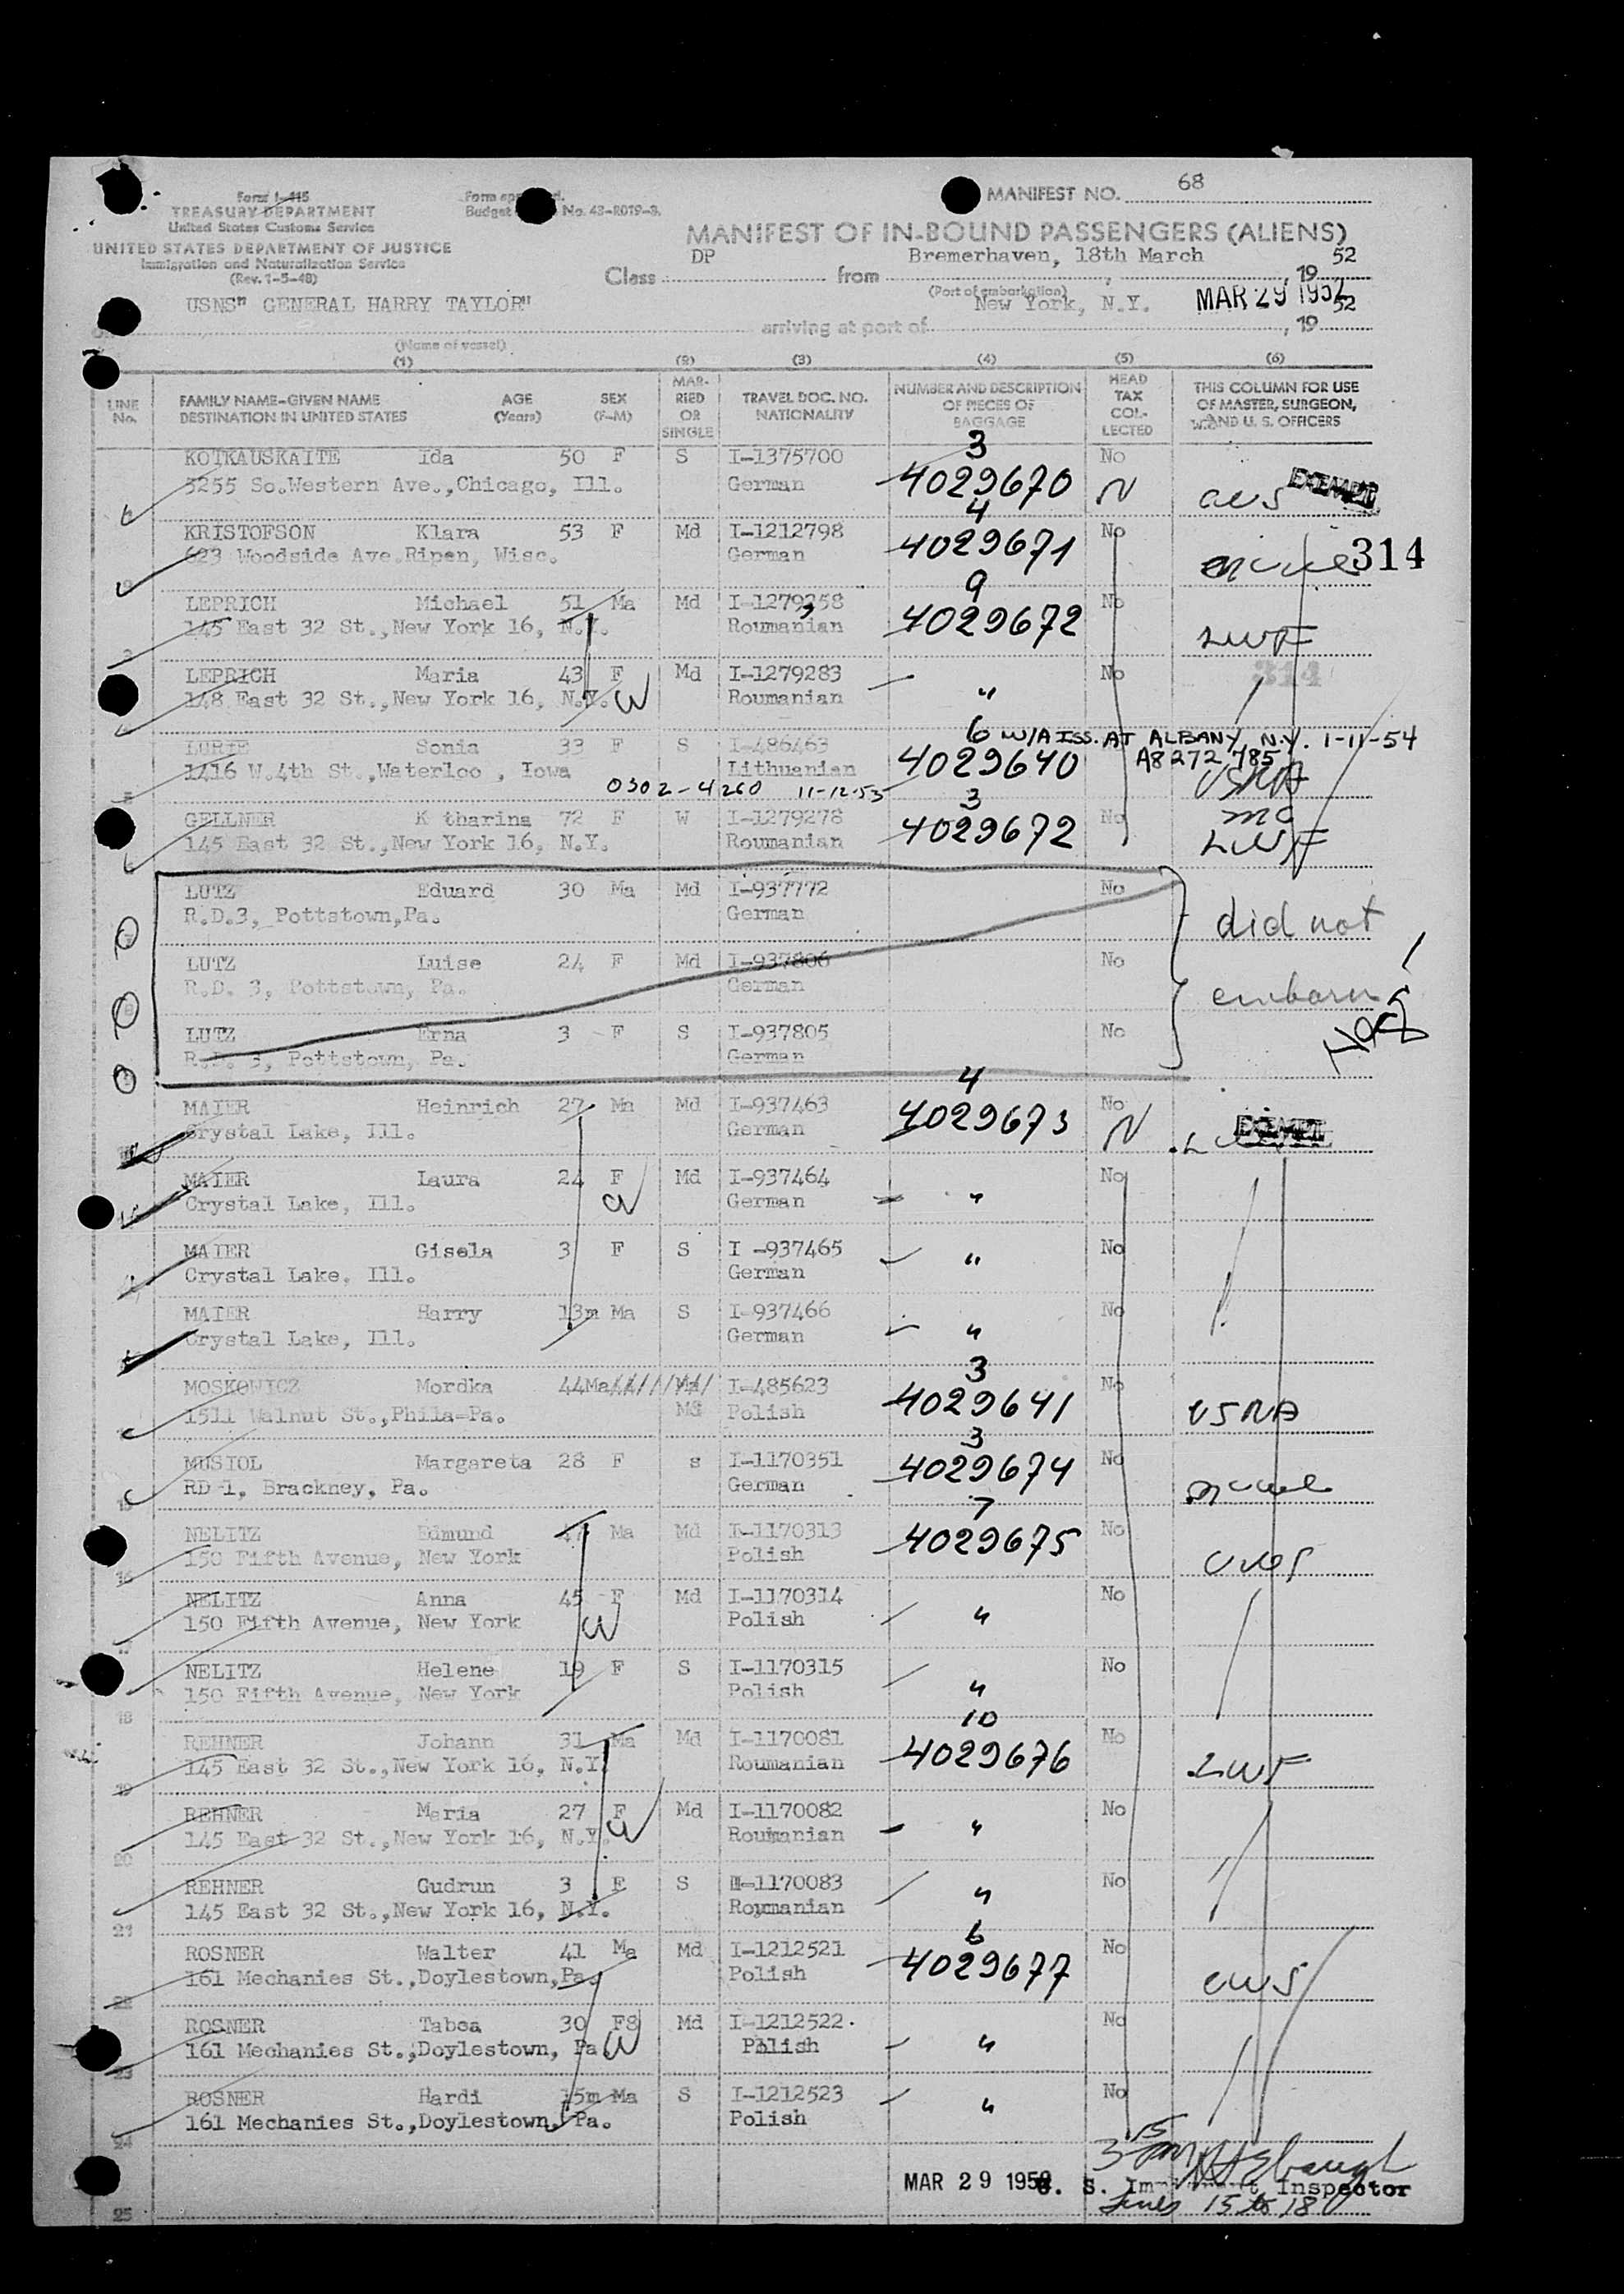 MANIFEST NO. 68
Form I-415
TREASURY DEPARTMENT
United States Customs Service
UNITED STATES DEPARTMENT OF JUSTICE
Immigration and Naturalization Service
(Rev. 1-5-48)
Budget No. 43-R079-3.
MANIFEST OF IN-BOUND PASSENGERS (ALIENS)
Class DP from Bremerhaven, 18th March, 19 52
(Port of embarkation)
USNS" GENERAL HARRY TAYLOR" arriving at port of New York, N.Y. MAR 29 1952, 19 52
(Name of vessel)
(1) (2) (3) (4) (5) (6)
LINE No. FAMILY NAME-GIVEN NAME DESTINATION IN UNITED STATES AGE (Years) SEX (F-M) MARRIED OR SINGLE TRAVEL DOC. NO. NATIONALITY NUMBER AND DESCRIPTION OF PIECES OF BAGGAGE HEAD TAX COLLECTED THIS COLUMN FOR USE OF MASTER, SURGEON, AND U. S. OFFICERS
KOTKAUSKAITE Ida 50 F S I-1375700 3 No
5255 So.Western Ave.,Chicago, Ill. German 4029670 N EXEMPT
KRISTOFSON Klara 53 F Md I-1212798 4 No
623 Woodside Ave.Ripen, Wisc. German 4029671 314
LEPRICH Michael 51 Ma Md I-1279258 9 No
145 East 32 St.,New York 16, N.Y. Roumanian 4029672 LWF
LEPRICH Maria 43 F Md I-1279283 No
148 East 32 St.,New York 16, N.Y. Roumanian " 314
LURIE Sonia 33 F S I-486463 6 W/A ISS. AT ALBANY, N.Y. 1-11-54
1416 W.4th St.,Waterloo , Iowa Lithuanian 4029640 A8 272 785 USNA
0302-4260 11-12-53
GELLNER K tharina 72 F W I-1279278 3 No
145 East 32 St.,New York 16, N.Y. Roumanian 4029672 LWF
LUTZ Eduard 30 Ma Md I-937772 No
R.D.3, Pottstown,Pa. German did not
LUTZ Luise 24 F Md I-937806 No
R.D. 3, Pottstown, Pa. German embark
LUTZ Erna 3 F S I-937805 No
R.D. 3, Pottstown, Pa. German
MAIER Heinrich 27 Ma Md I-937463 4 No
Crystal Lake, Ill. German 4029673 N EXEMPT
MAIER Laura 24 F Md I-937464 No
Crystal Lake, Ill. German "
MAIER Gisela 3 F S I -937465 No
Crystal Lake, Ill. German "
MAIER Harry 13m Ma S I-937466 No
Crystal Lake, Ill. German "
MOSKOWICZ Mordka 44Ma I-485623 3 No
1511 Walnut St.,Phila-Pa. Polish 4029641 USNA
MUSIOL Margareta 28 F s I-1170351 3 No
RD-1, Brackney, Pa. German 4029674
NELITZ Edmund 47 Ma Md I-1170313 7 No
150 Fifth Avenue, New York Polish 4029675
NELITZ Anna 45 F Md I-1170314 No
150 Fifth Avenue, New York Polish "
NELITZ Helene 19 F S I-1170315 No
150 Fifth Avenue, New York Polish "
18
REHNER Johann 31 Ma Md I-1170081 10 No
145 East 32 St.,New York 16, N.Y. Roumanian 4029676 LWF
19
REHNER Maria 27 F Md I-1170082 No
145 East 32 St.,New York 16, N.Y. Roumanian "
20
REHNER Gudrun 3 F S I-1170083 No
145 East 32 St.,New York 16, N.Y. Roumanian "
21
ROSNER Walter 41 Ma Md I-1212521 6 No
161 Mechanies St.,Doylestown,Pa. Polish 4029677 CWS
22
ROSNER Tabea 30 F Md I-1212522. No
161 Mechanies St.,Doylestown, Pa. Polish "
23
ROSNER Hardi 15m Ma S I-1212523 No
161 Mechanies St.,Doylestown, Pa. Polish "
24
MAR 29 1952 U. S. Immigrant Inspector
25 Lines 15 to 18